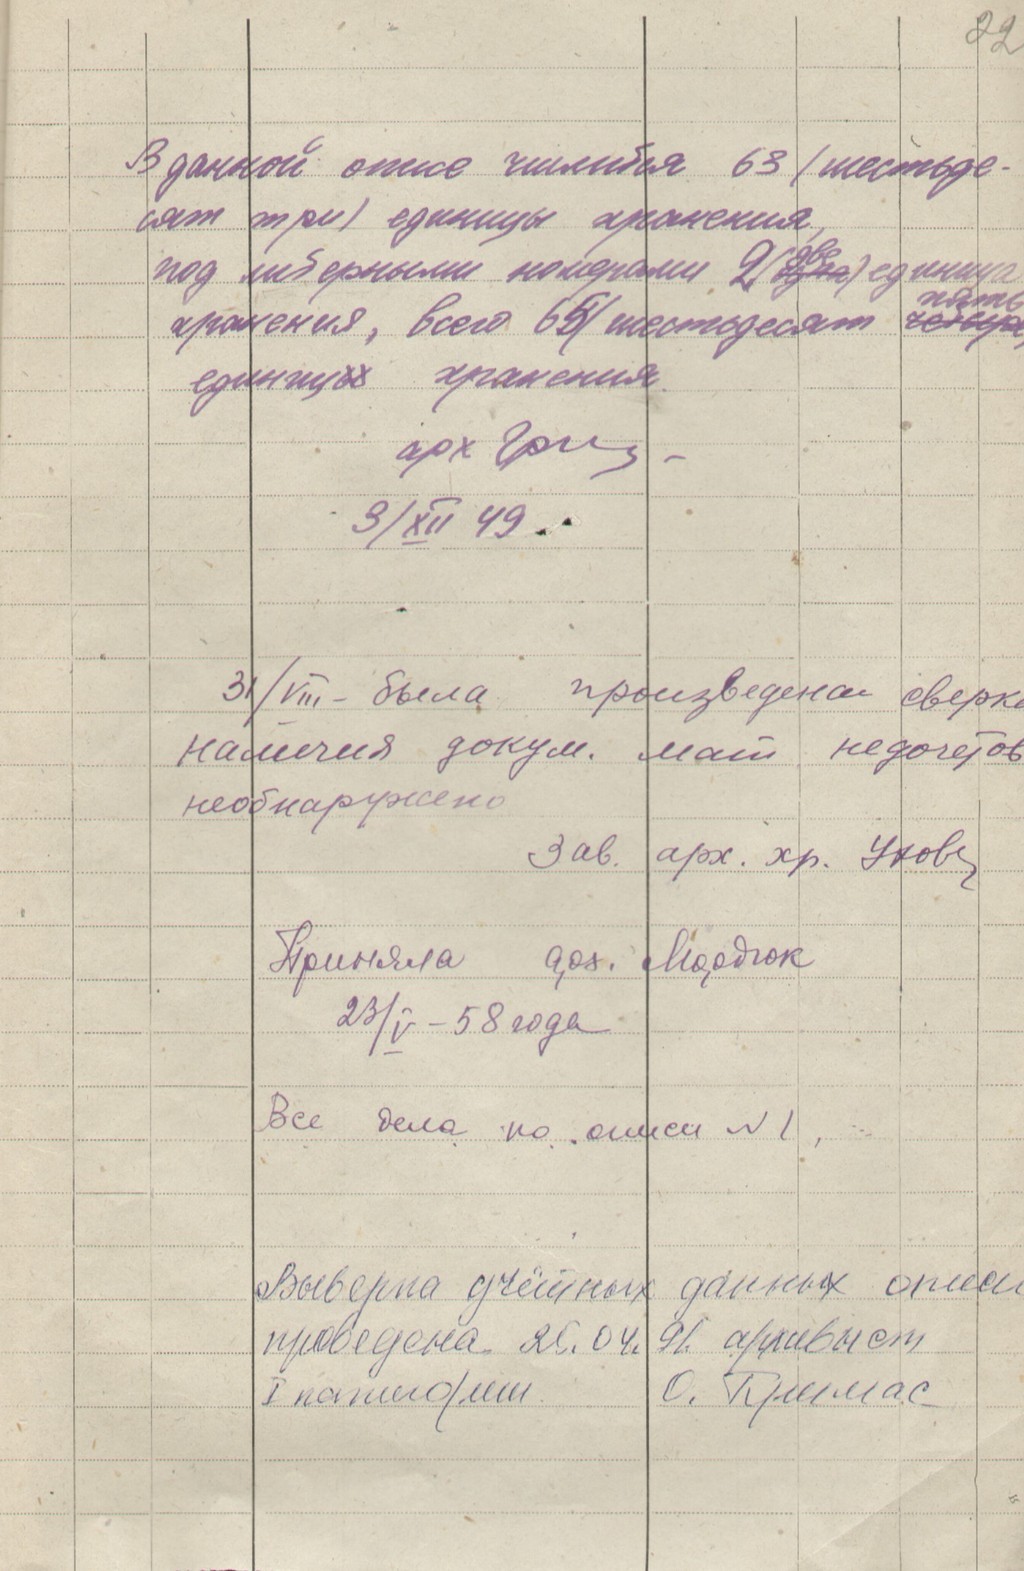 22
В данной описе числится 63 /шестьде-
сят три/ единицы хранения,
под литерными номерами 2 (две) единица
хранения, всего 65/ шестьдесят пять
единицы хранения
арх
3/XII 49
31/VIII - была произведена сверка
наличия докум. мат недочетов
необнаружено
Зав. арх. хр.
Приняла Мордюк
23/V - 58 года
Все дела по описи N 1,
Выверка учётных данных описи
проведена 04. 91. архивист
I категории О. Примас